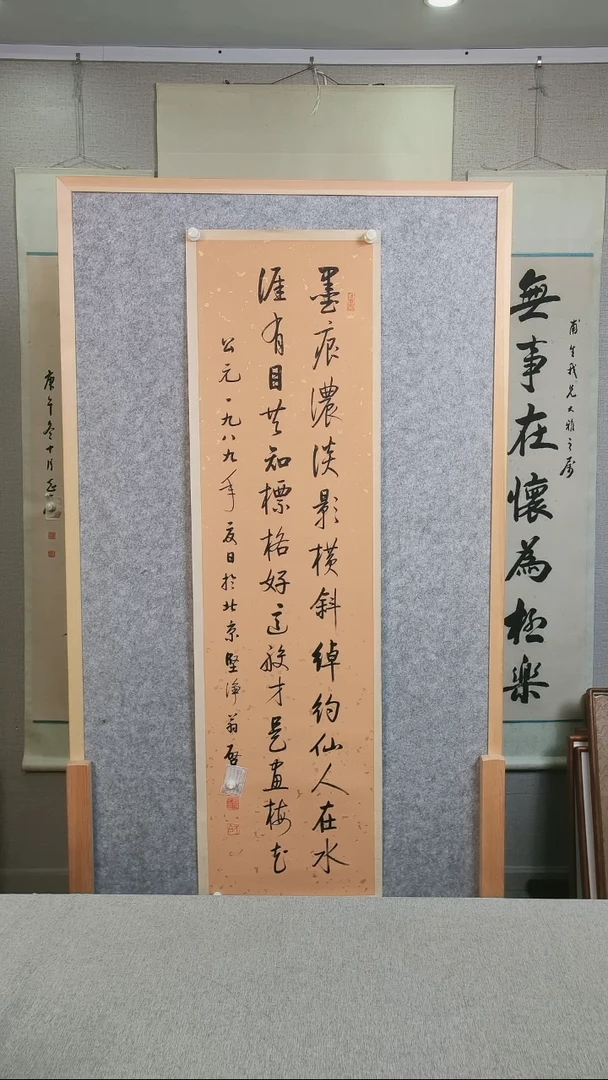 甫生我兄大雅之屬
無事在懷為極樂
墨痕濃淡影橫斜綽約仙人在水
涯有目共知標格好這般才是畫梅花
公元一九八九年夏日於北京堅淨翁啓
庚午冬十月